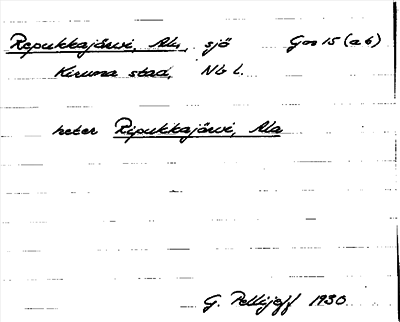 Repukkajärvi, Ala, sjö Gos 15 (a6)
Kiruna stad, Nb l.
heter Ripukkajärvi, Ala
G. Pellijeff 1930